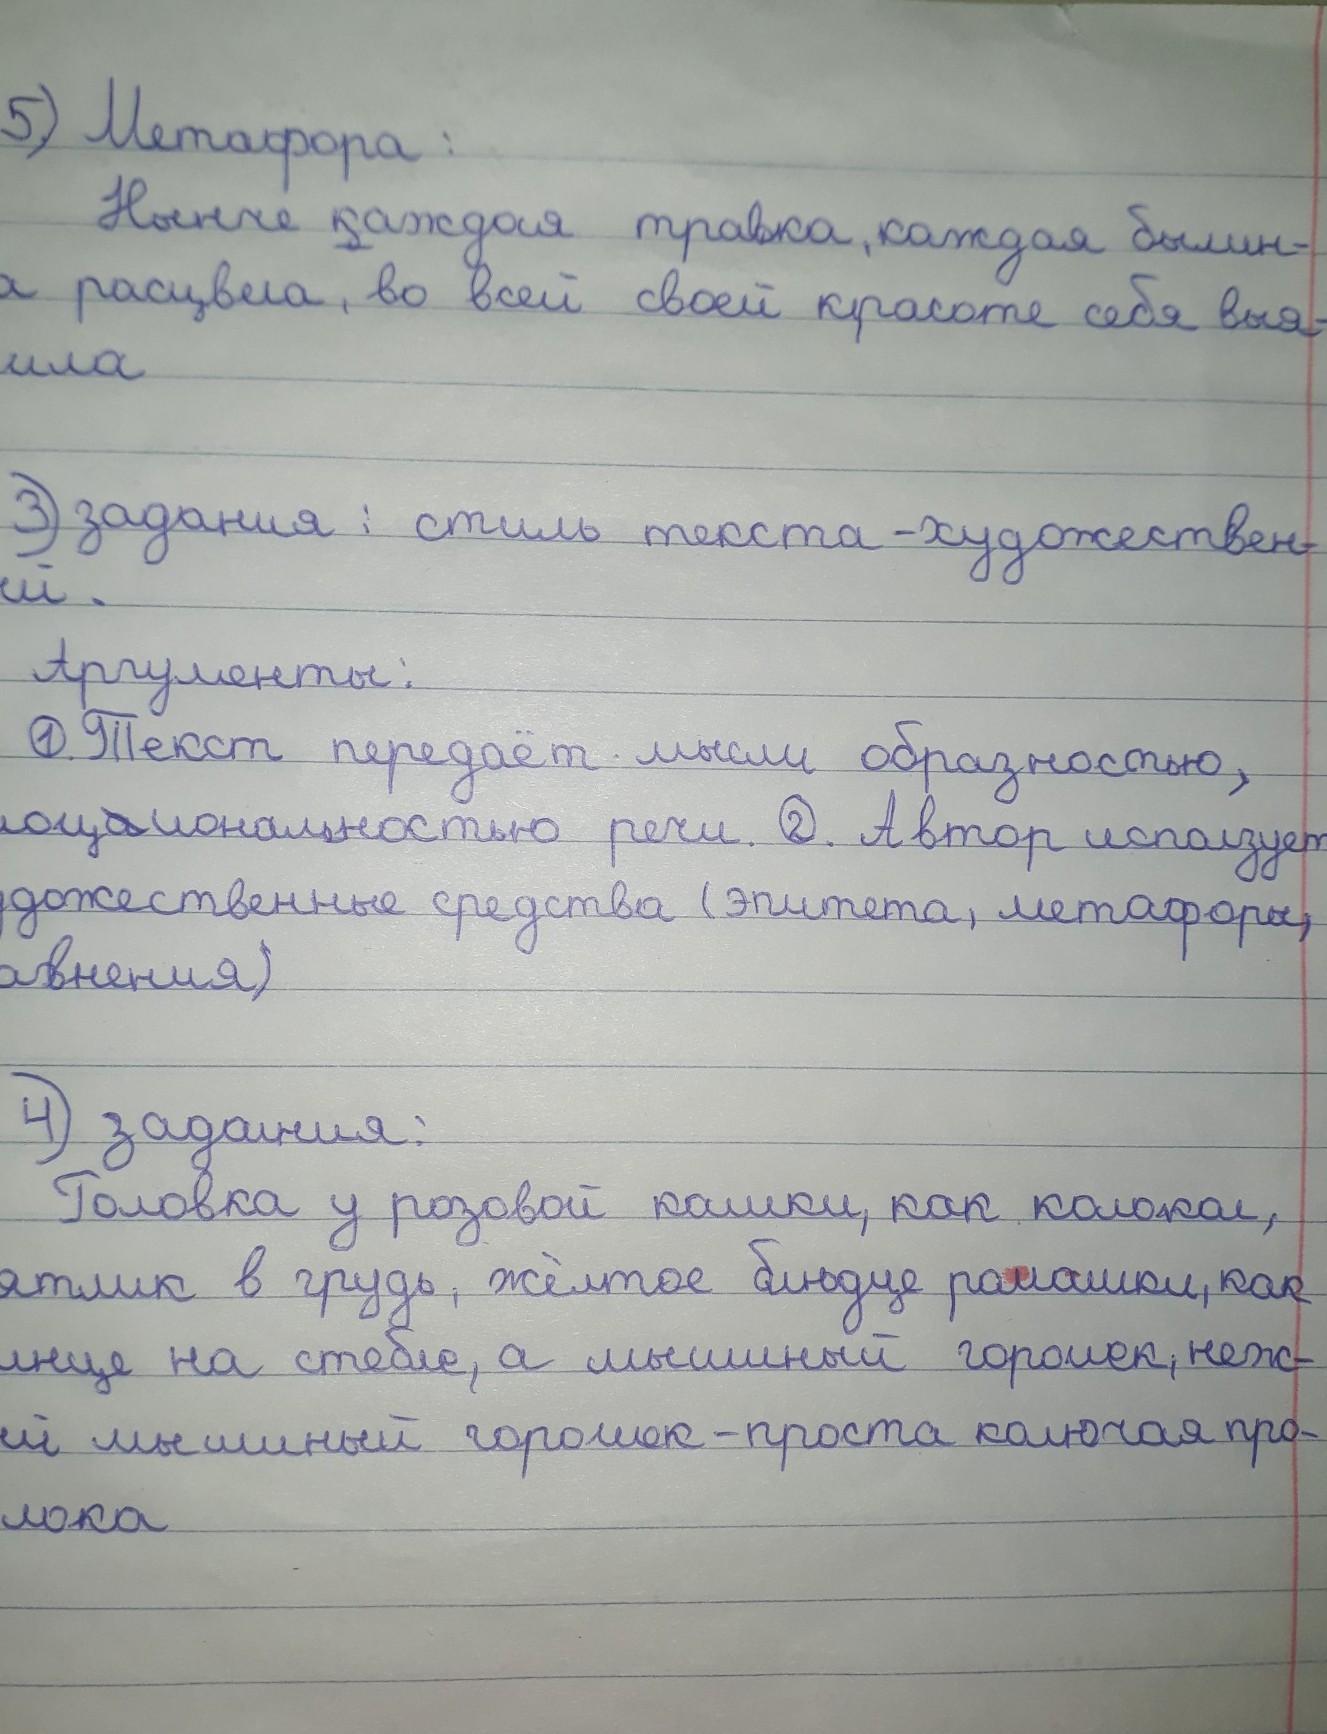 5) Метафора:
Нынче каждая травка, каждая былин-
а расцвела, во всей своей красоте себя выя-
ила
3) задания: стиль текста - художествен-
ий.
Аргументы:
①. Текст передаёт мысли образностью,
моциональностью речи. ②. Автор исползует
удожественные средства (эпитета, метафоры,
авнения)
4) задания:
Головка у розовой кашки, как колокол,
ятлик в грудь, жёлтое блюдце ромашки, как
лнце на стебле, а мышиный горошек, неж-
ый мышиный горошек - проста колючая про-
лока